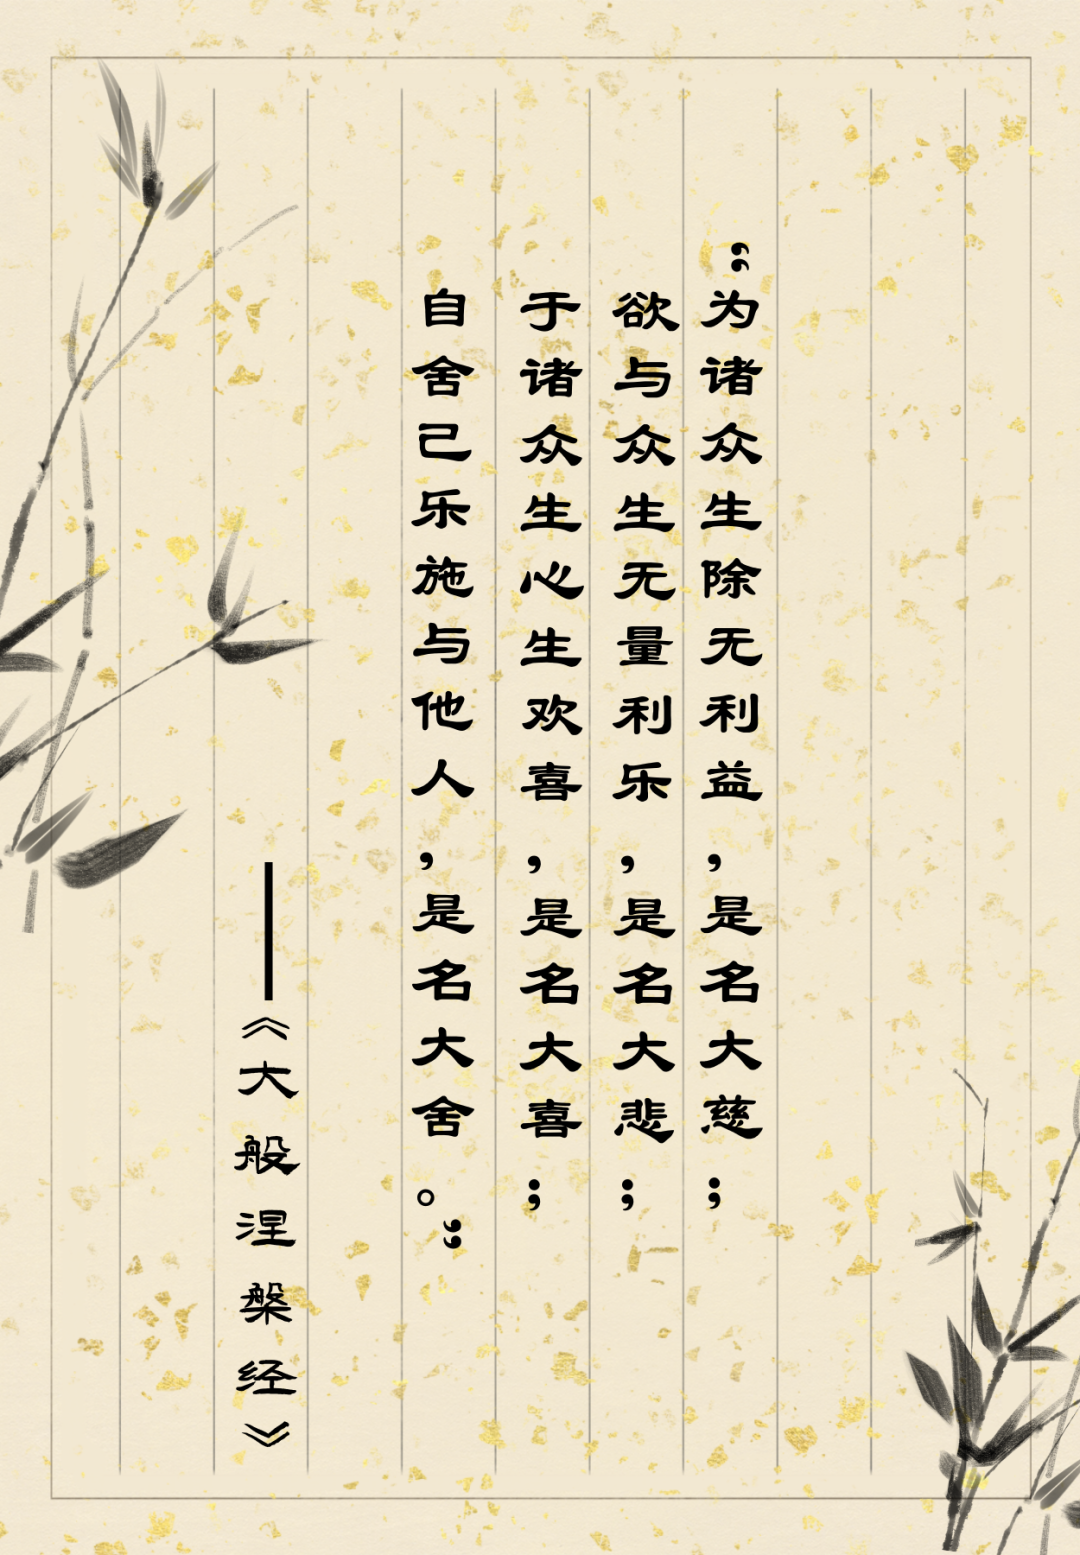 “为诸众生除无利益,是名大慈;
欲与众生无量利乐,是名大悲;
于诸众生心生欢喜,是名大喜;
自舍己乐施与他人,是名大舍。”
——《大般涅槃经》